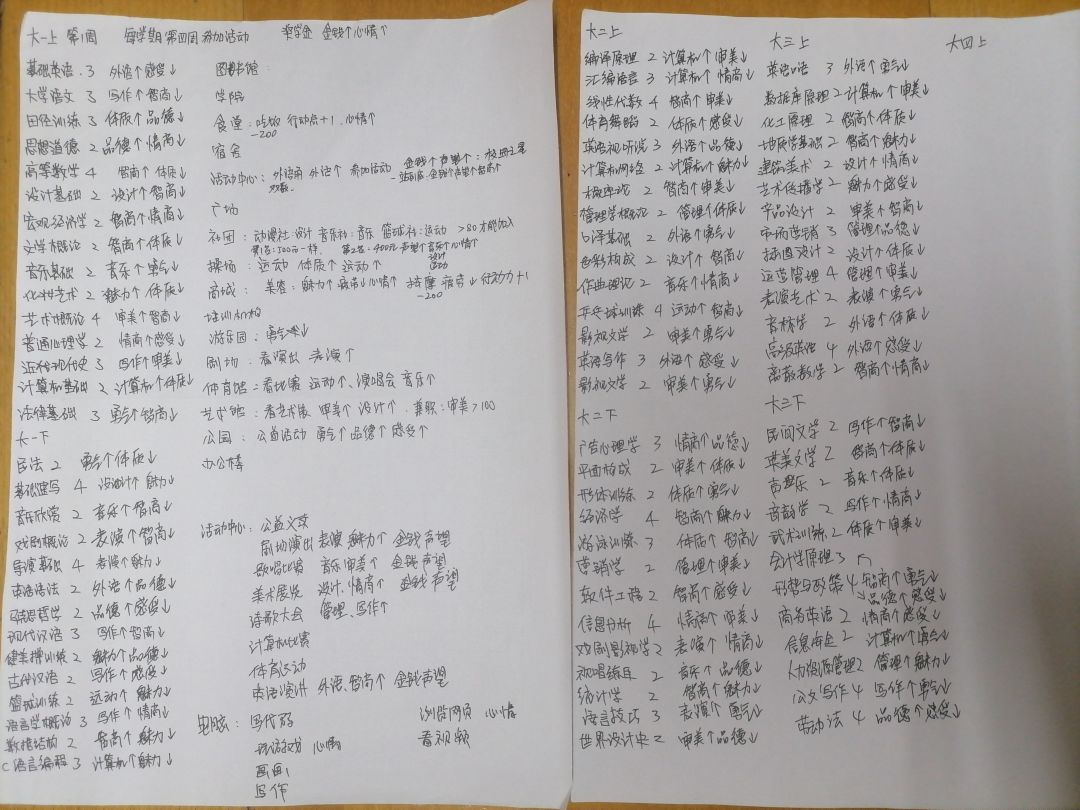 大一上 第1周 每学期第四周参加活动 奖学金 金钱↑心情↑
基础英语 3 外语↑感受↓
大学语文 3 写作↑智商↓
田径训练 3 体质↑品德↓
思想道德 2 品德↑情商↓
高等数学 4 智商↑体质↓
设计基础 2 设计↑智商↓
宏观经济学 2 智商↑情商↓
文学概论 2 智商↑体质↓
音乐基础 2 音乐↑勇气↓
化妆艺术 2 魅力↑体质↓
艺术概论 4 审美↑智商↓
普通心理学 2 情商↑感受↓
近代现代史 3 写作↑审美↓
计算机基础 2 计算机↑体质↓
法律基础 3 勇气↑智商↓
大一下
民法 2 勇气↑体质↓
基础速写 4 设计↑魅力↓
音乐欣赏 2 音乐↑智商↓
戏剧概论 2 表演↑智商↓
导演基础 4 表演↑魅力↓
英语语法 2 外语↑品德↓
马克思哲学 2 品德↑感受↓
现代汉语 3 写作↑智商↓
健美操训练 2 魅力↑品德↓
古代汉语 2 写作↑感受↓
篮球训练 2 运动↑魅力↓
语言学概论 3 写作↑情商↓
数据结构 2 智商↑魅力↓
C语言编程 3 计算机↑魅力↓
图书馆:
学院
食堂:吃饭 行动点+1 心情↑
-200
宿舍
活动中心:外语角 外语↑ 参加活动
双数
广场
社团:动漫社:设计 音乐社:音乐 篮球社:运动 >80才能加入
第1名:500元一样 第2名:400元 声望↑音乐↑心情↑
设计
运动
操场:运动 体质↑运动↑
商城:美容:魅力↑疲劳↓心情↑ 按摩 疲劳↓行动力+1
-200
培训机构
游乐园:勇气↓
剧场:看演出 表演↑
体育馆:看比赛 运动↑、演唱会 音乐↑
艺术馆:看艺术展 审美↑设计↑、兼职:审美>100
公园:公益活动 勇气↑品德↑感受↑
办公楼
活动中心:公益义卖
剧场演出 表演 魅力↑ 金钱声望
歌唱比赛 音乐审美↑ 金钱声望
美术展览 设计、情商↑ 金钱声望
诗歌大会 管理、写作↑
计算机比赛
体育运动
英语演讲 外语、智商↑ 金钱声望
电脑:写代码 浏览网页 心情
玩游戏 心情 看视频
画画
写作
大二上
编译原理 2 计算机↑审美↓
汇编语言 3 计算机↑情商↓
线性代数 4 智商↑审美↓
体育舞蹈 2 体质↑感受↓
英语视听说 3 外语↑品德↓
计算机网络 2 计算机↑魅力↓
概率论 2 智商↑审美↓
管理学概论 2 管理↑体质↓
口译基础 2 外语↑勇气↓
色彩构成 2 设计↑智商↓
作曲理论 2 音乐↑情商↓
乒乓球训练 4 运动↑智商↓
影视文学 2 审美↑勇气↓
英语写作 3 外语↑感受↓
影视文学 2 审美↑勇气↓
大二下
广告心理学 3 情商↑品德↓
平面构成 2 审美↑体质↓
形体训练 2 体质↑勇气↓
经济学 4 智商↑魅力↓
游泳训练 3 体质↑智商↓
营销学 2 管理↑审美↓
软件工程 2 智商↑感受↓
信息分析 4 情商↑审美↓
戏剧影视学 2 表演↑情商↓
视唱练耳 2 音乐↑品德↓
统计学 2 智商↑魅力↓
语言技巧 3 表演↑勇气↓
世界设计史 2 审美↑品德↓
大三上
英语口语 3 外语↑勇气↓
数据库原理 2 计算机↑审美↓
化工原理 2 智商↑体质↓
地质学基础 2 智商↑魅力↓
建筑美术 2 设计↑情商↓
艺术传播学 2 魅力↑感受↓
产品设计 2 审美↑智商↓
市场营销 3 管理↑品德↓
插画设计 2 设计↑体质↓
运营管理 4 管理↑审美↓
表演艺术 2 表演↑勇气↓
音标学 2 外语↑体质↓
高级英语 4 外语↑感受↓
离散数学 2 智商↑情商↓
大三下
民间文学 2 写作↑智商↓
英美文学 2 智商↑体质↓
声乐 2 音乐↑体质↓
音韵学 2 写作↑情商↓
武术训练 2 体质↑审美↓
会计学原理 3
形势与政策 4 智商↑勇气↓
品德↑感受↓
商务英语 2 情商↑感受↓
信息安全 2 计算机↑勇气↓
人力资源管理 2 管理↑魅力↓
公文写作 4 写作↑勇气↓
劳动法 4 品德↑感受↓
大四上